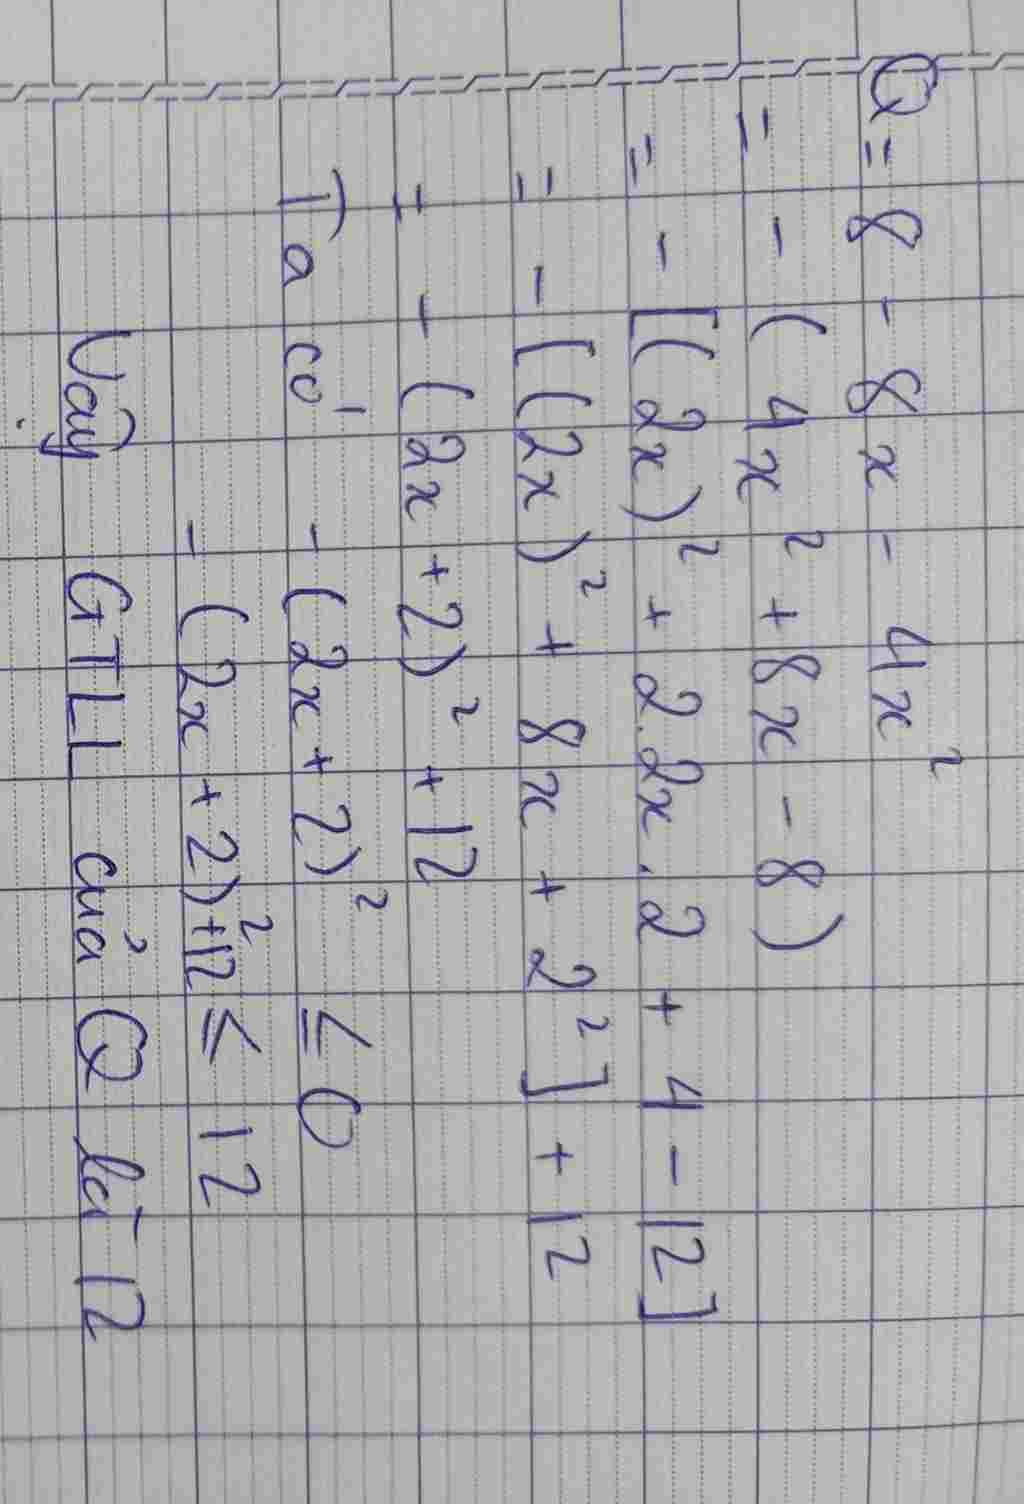 Q = 8 - 8x - 4x²
= - (4x² + 8x - 8)
= - [(2x)² + 2.2x.2 + 4 - 12]
= - [(2x)² + 8x + 2²] + 12
= - (2x + 2)² + 12
Ta có - (2x + 2)² ≤ 0
- (2x + 2)² + 12 ≤ 12
Vậy GTLL của Q là 12